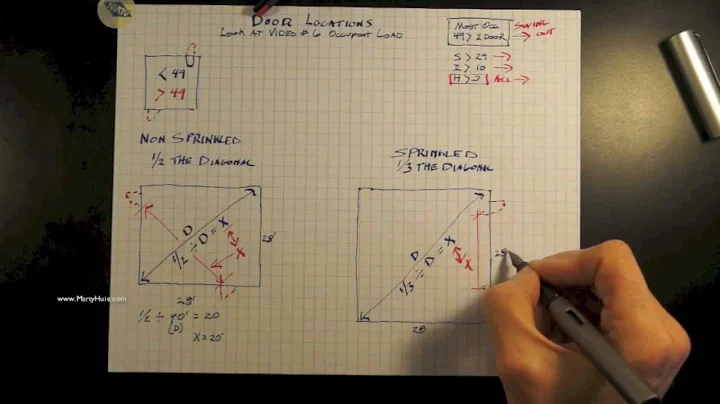 DOOR LOCATIONS
LOOK AT VIDEO #6 OCCUPANT LOAD
MOST OCC
49 > 2 DOOR →
SWING
OUT
S > 29 →
I > 10 →
ALL →
< 49
> 49
NON SPRINKLED
1/2 THE DIAGONAL
D
1/2 ÷ D = X
X
28'
28'
1/2 ÷ 40' = 20
(D)
X = 20'
SPRINKLED
1/3 THE DIAGONAL
D
1/3 ÷ D = X
X
28
28
www.MartyHuie.com